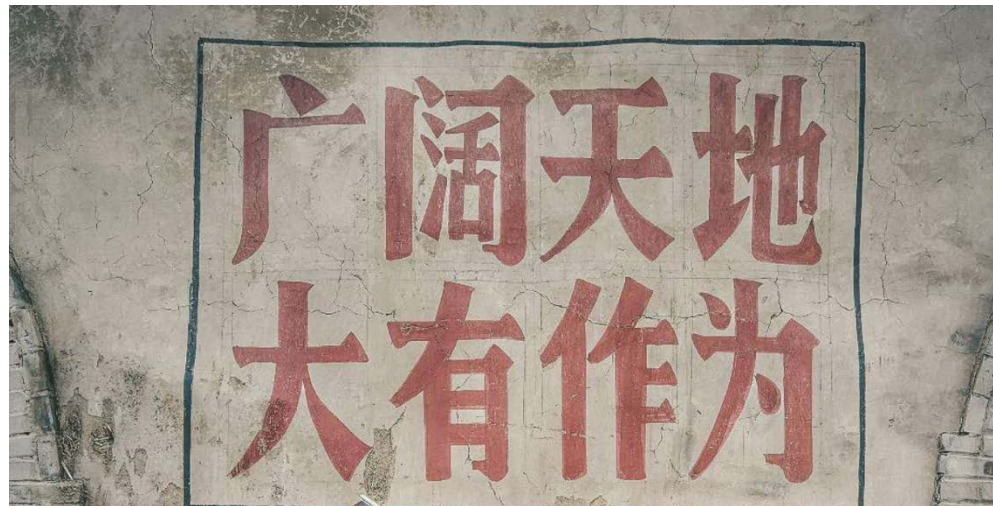 广阔天地
大有作为